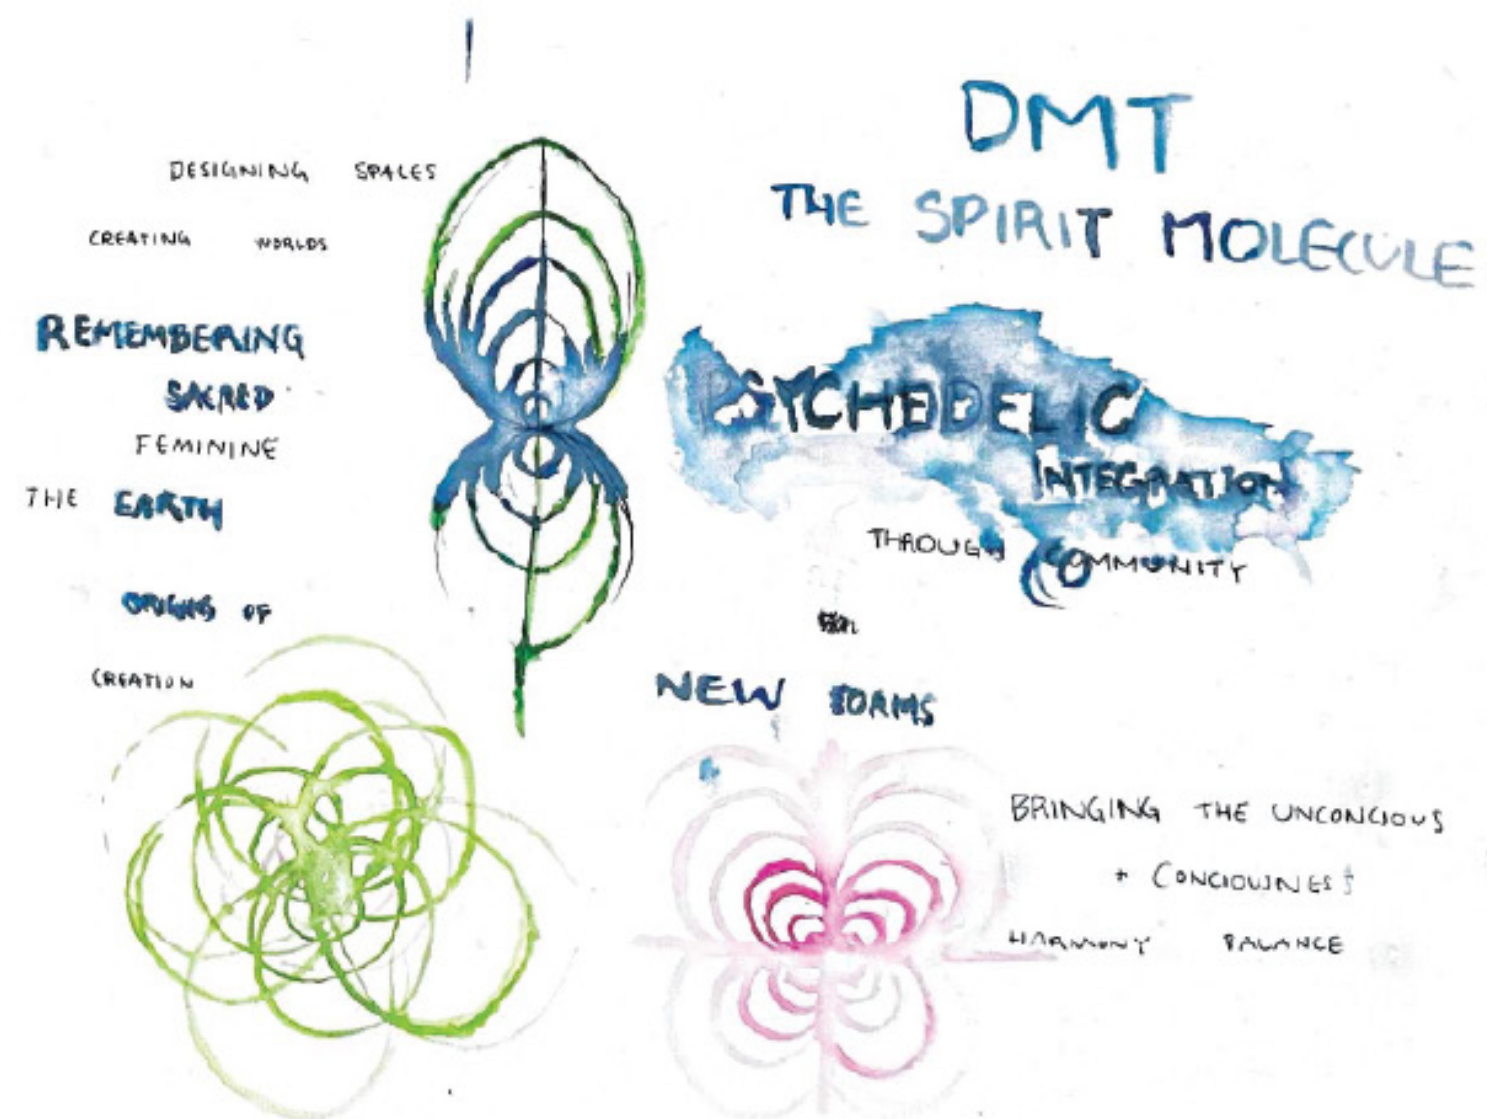 DESIGNING SPACES
CREATING WORLDS
REMEMBERING
SACRED
FEMININE
THE EARTH
ORIGINS OF
CREATION
DMT
THE SPIRIT MOLECULE
PSYCHEDELIC
INTEGRATION
THROUGH COMMUNITY
NEW FORMS
BRINGING THE UNCONCIOUS
+ CONCIOUSNESS
HARMONY BALANCE